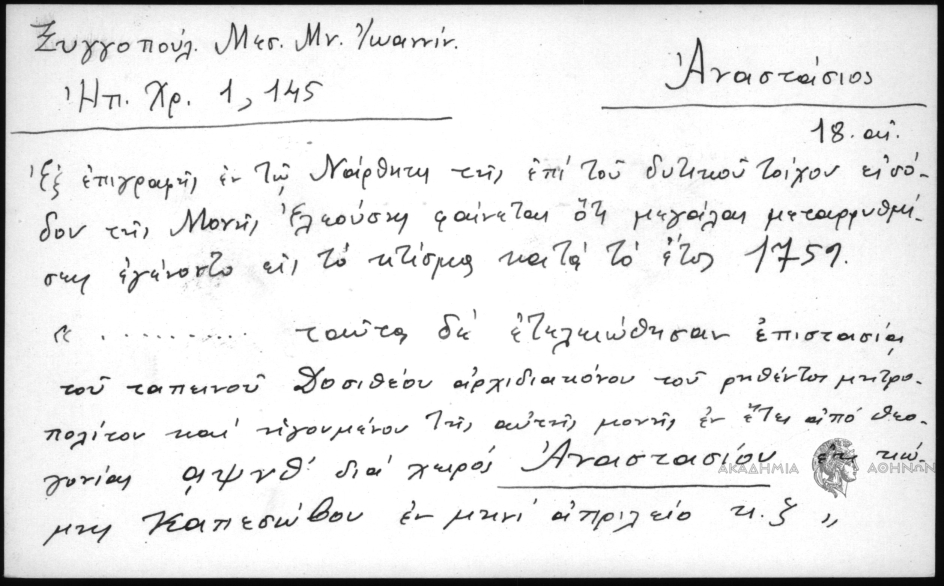 Ξυγγοπούλ. Μεσ. Μν. Ἰωαννίν.
Ἠπ. Χρ. 1, 145
Ἀναστάσιος
18. αἰ.
Ἐξ ἐπιγραφῆς ἐν τῷ Νάρθηκι τῆς ἐπί τοῦ δυτικοῦ τοίχου εἰσό-
δου τῆς Μονῆς Ἐλεούσης φαίνεται ὅτι μεγάλαι μεταρρυθμί-
σεις ἐγένοντο εἰς τό κτίσμα κατά τό ἔτος 1759.
« .......... ταῦτα δέ ἐτελειώθησαν ἐπιστασίᾳ
τοῦ ταπεινοῦ Δοσιθέου ἀρχιδιακόνου τοῦ ρηθέντος μητρο-
πολίτου καί ἡγουμένου τῆς αὐτῆς μονῆς ἐν ἔτει ἀπό θεο-
γονίας αψνθ' διά χειρός Ἀναστασίου ἐκ κώ-
μης Καπεσόβου ἐν μηνί ἀπριλείο κ. ξ »
ΑΚΑΔΗΜΙΑ ΑΘΗΝΩΝ